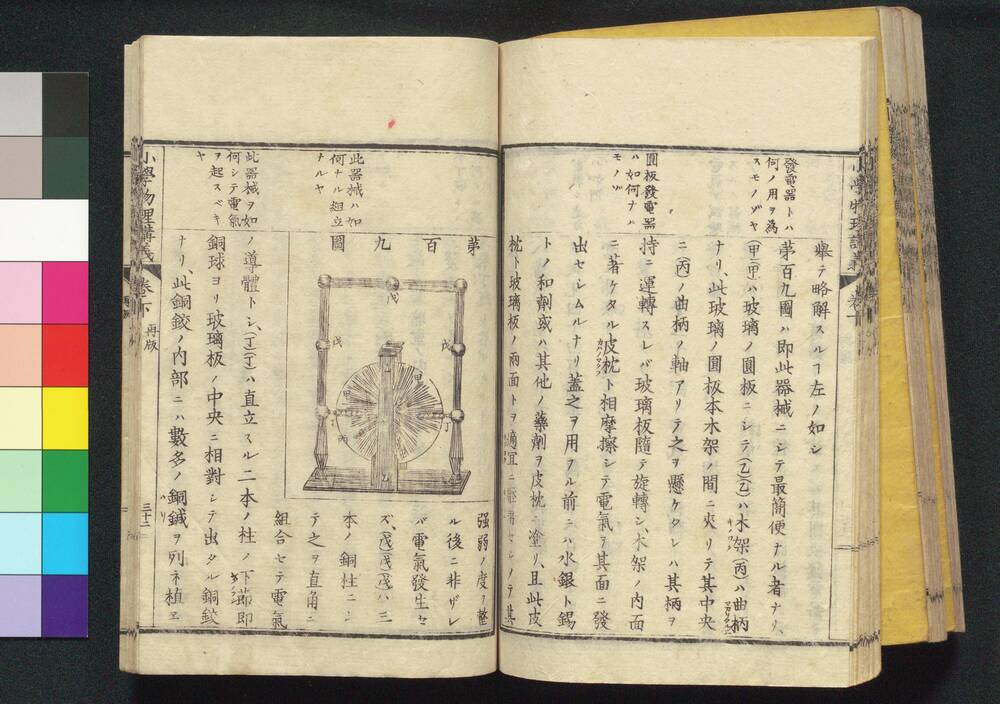 發電器トハ
何ノ用ヲ爲
スモノゾヤ
圓板發電器
ハ如何ナル
モノゾ
擧テ略解スルヿ左ノ如シ
第百九圖ハ即此器械ニシテ最簡便ナル者ナリ、
(甲)(甲)ハ玻璃ノ圓板ニシテ(乙)(乙)ハ木架(丙)ハ曲柄
ナリ、此玻璃ノ圓板木木架ノ間ニ夾リテ其中央
ニ(丙)ノ曲柄ノ軸アリテ之ヲ懸ケタレハ其柄ヲ
持ニ運轉スレバ玻璃板隨テ旋轉シ、木架ノ内面
ニ著ケタル皮枕ト相摩擦シテ電氣ヲ其面ニ發
出セシムルナリ蓋之ヲ用フル前ニハ水銀ト錫
トノ和劑或ハ其他ノ藥劑ヲ皮枕ニ塗リ、且此皮
枕ト玻璃板ノ兩面トヲ適宜ニ
此器械ハ如
何ナル組立
ナルヤ
此器械ヲ如
何シテ電氣
ヲ起スベキ
ヤ
第百九圖
戊
戊
戊
甲
甲
丁
丁
丙
乙
强弱ノ度ヲ整
ル後ニ非ザレ
バ電氣發生セ
ズ、(戊)(戊)(戊)ハ三
本ノ銅柱ニシ
テ之ヲ直角ニ
組合セテ電氣
ノ導體トシ、(丁)(丁)ハ直立スル二本ノ柱ノ下節即
銅球ヨリ玻璃板ノ中央ニ相對シテ出タル銅鋏
ナリ、此銅鋏ノ内部ニハ數多ノ銅鍼ヲ列ネ植ヱ
小學物理講義
卷下
再版
三十二